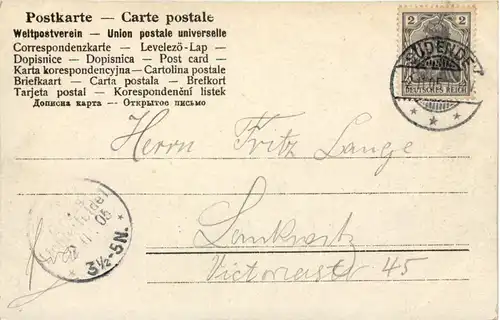 Postkarte — Carte postale
Weltpostverein — Union postale universelle
Correspondenzkarte — Levelező-Lap —
Dopisnice — Dopisnica — Post card —
Karta korespondencyjna — Cartolina postale
Briefkaart — Carta postala — Brefkort
Tarjeta postal — Korespondenční listek
Дописна карта — Открытое письмо
2 2
DEUTSCHES REICH
SÜDENDE
Herrn Fritz Lange
Lankwitz
Victoriastr 45
05
3½-5N.